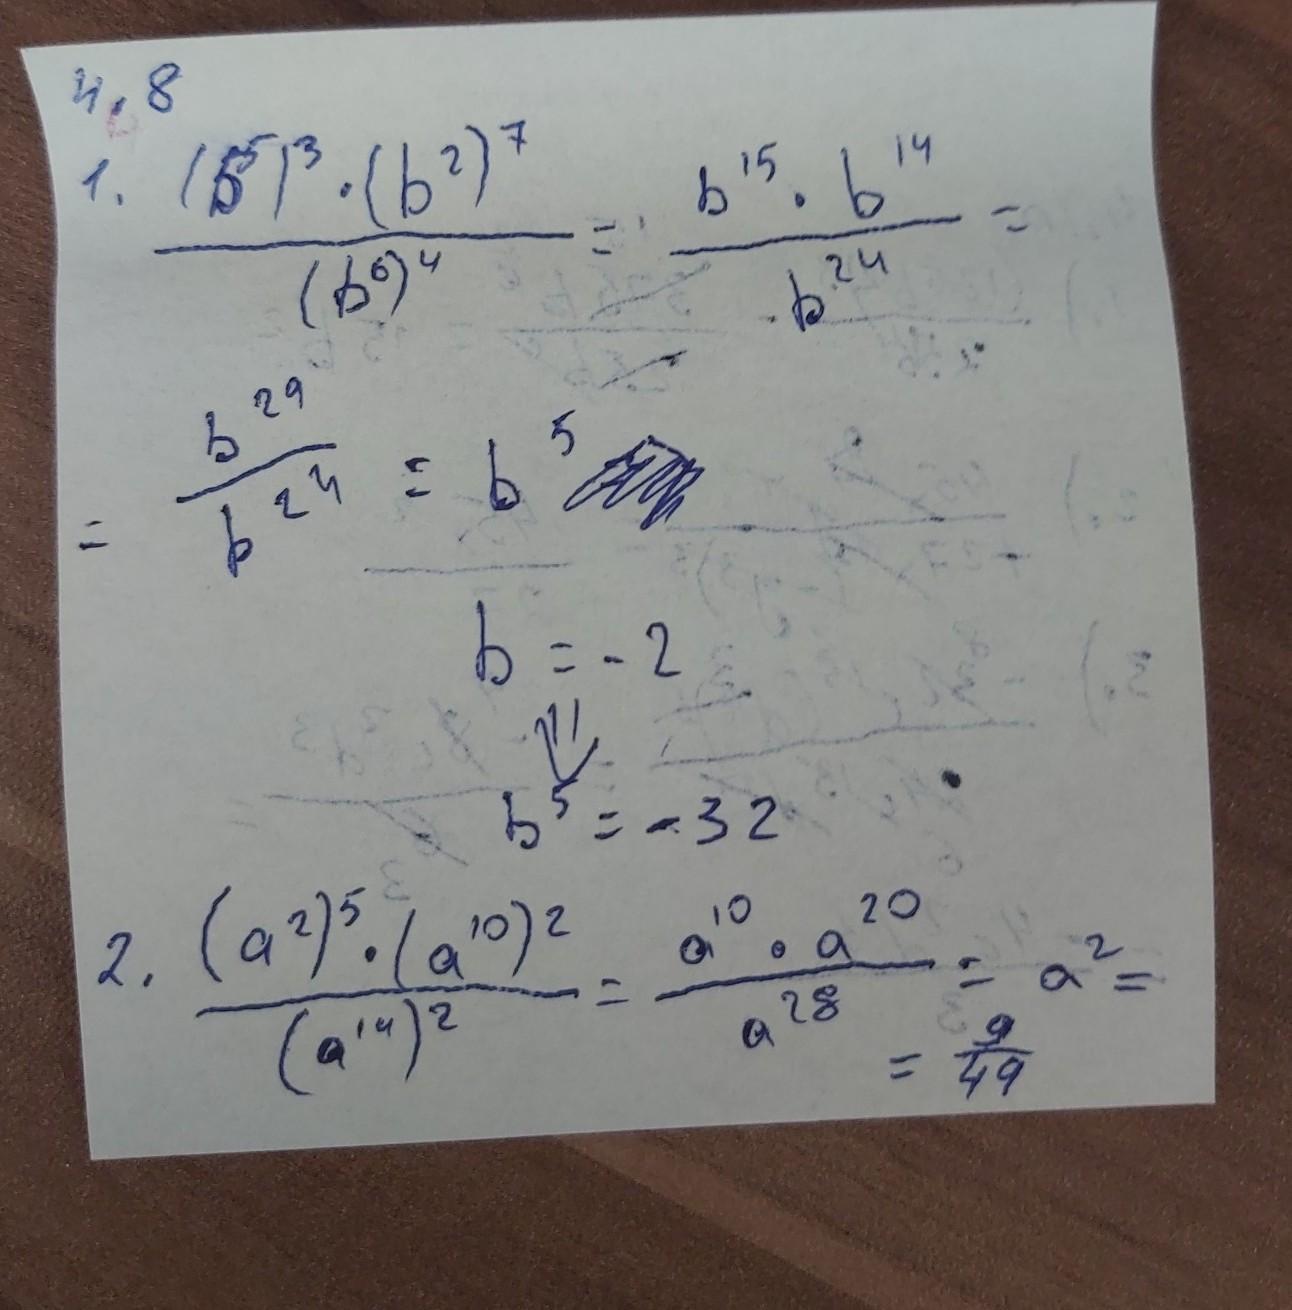 4.8
1. (b⁵)³·(b²)⁷/(b⁶)⁴ = b¹⁵·b¹⁴/b²⁴ =
= b²⁹/b²⁴ = b⁵
b = -2
⇓
b⁵ = -32
2. (a²)⁵·(a¹⁰)²/(a¹⁴)² = a¹⁰·a²⁰/a²⁸ = a² =
= 9/49